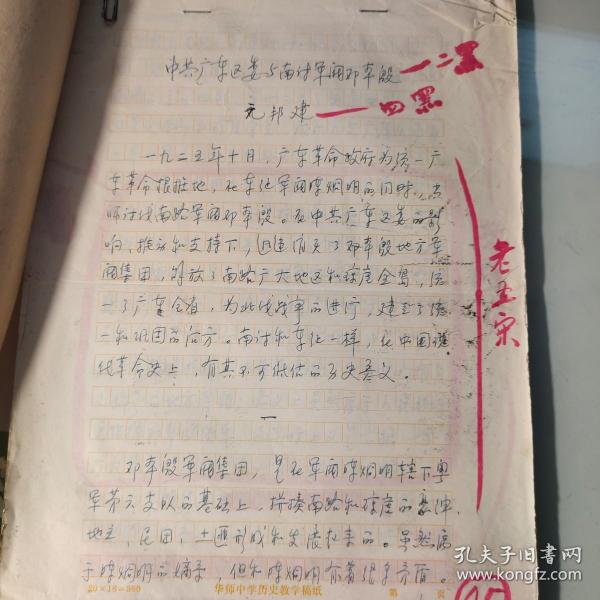 中共广东区委与南讨军阀邓本殷 二黑
元邦建 四黑
一九二五年十月，广东革命政府为统一广
东革命根据地，在东征军阀陈炯明的同时，出
师讨伐南路军阀邓本殷。在中共广东区委的影
响、推动和支持下，迅速消灭了邓本殷地方军
阀集团，解放了南路广大地区和琼崖全岛，统
一了广东全省，为北伐战争的进行，建立了统
一和巩固的后方。南讨和东征一样，在中国现
代革命史上，有其不可低估的历史意义。
老五宋
一
邓本殷军阀集团，是在军阀陈炯明辖下粤
军第六支队的基础上，拼凑南路和琼崖的
地主、民团、土匪形成和发展起来的。虽然属
于陈炯明的嫡系，但和陈炯明有着很多矛盾。
20×18=360 华师中学历史教学稿纸 第 页
孔夫子旧书网
book.kongfz.com